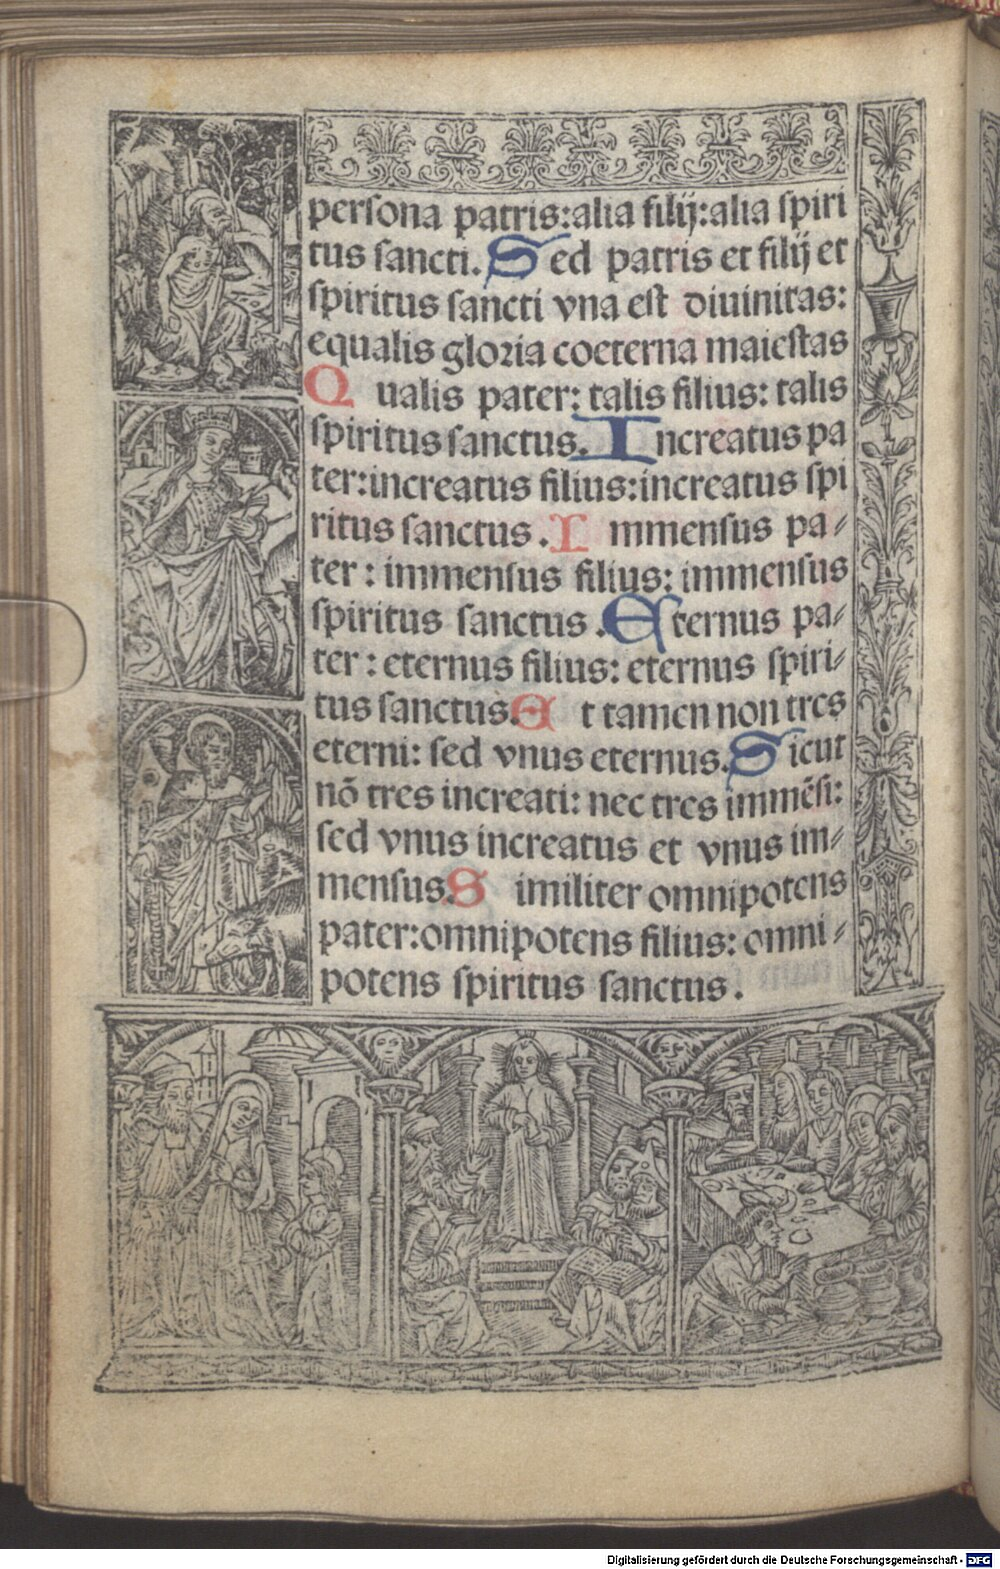 persona patris:alia filij:alia spiri
tus sancti. Sed patris et filij et
spiritus sancti vna est diuinitas:
equalis gloria coeterna maiestas
Qualis pater: talis filius: talis
spiritus sanctus. Increatus pa
ter:increatus filius:increatus spi
ritus sanctus. Immensus pa-
ter: immensus filius: immensus
spiritus sanctus. Eternus pa-
ter: eternus filius: eternus spiri-
tus sanctus. Et tamen non tres
eterni: sed vnus eternus. Sicut
nõ tres increati: nec tres immẽsi:
sed vnus increatus et vnus im-
mensus. Similiter omnipotens
pater:omnipotens filius: omni-
potens spiritus sanctus.
Digitalisierung gefördert durch die Deutsche Forschungsgemeinschaft - DFG